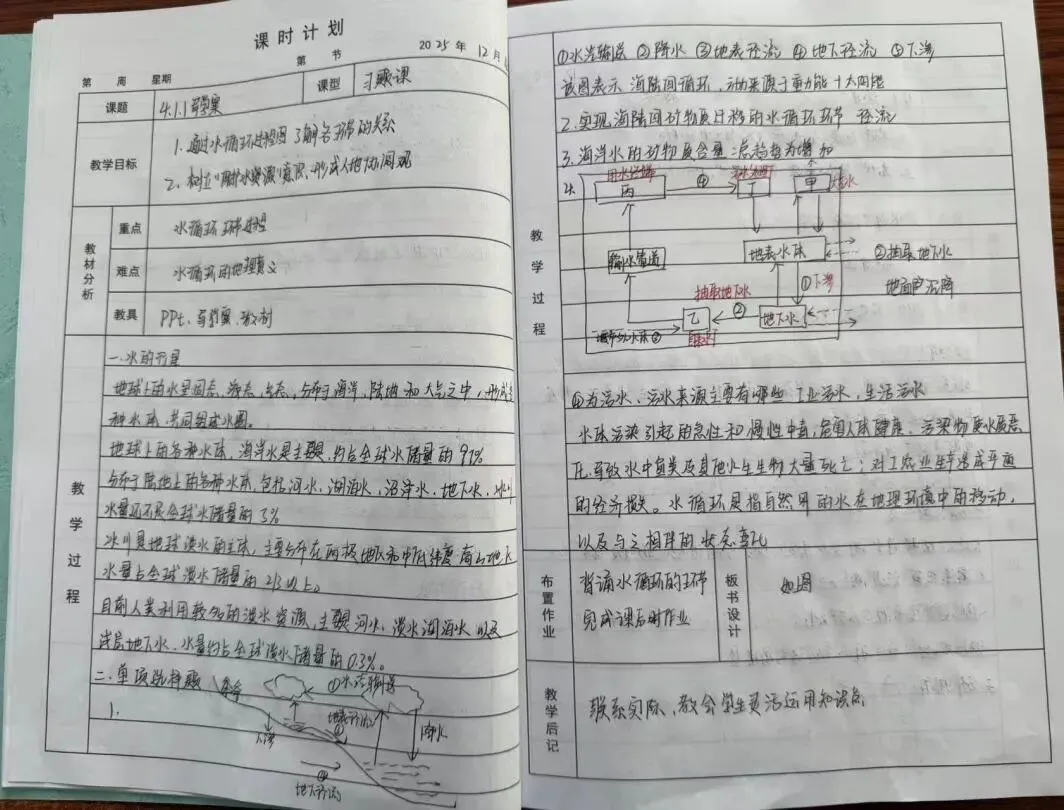 课时计划
2025年 12月
第 节
第 周 星期
课题 4.1.1导学案 课型 习题课
教学目标
1. 通过水循环过程图了解各环节的关系
2. 树立"保护水资源"意识、形成人地协调观
教材分析
重点 水循环环节过程
难点 水循环的地理意义
教具 PPt、导学案、教材
教学过程
一.水的行星
地球上的水呈固态、液态、气态、分布于海洋、陆地和大气之中,形成各
种水体,共同组成水圈。
地球上的各种水体,海洋水是主要,约占全球水储量的97%
分布于陆地上的各种水体,包括河水、湖泊水、沼泽水、地下水、冰川
水量还不足全球水储量的3%
冰川是地球淡水的主体,主要分布在两极地区和中低纬度高山地区
水量占全球淡水储量的2/3以上。
目前人类利用较多的淡水资源,主要是河水、淡水湖泊水以及
浅层地下水,水量约占全球淡水储量的0.3%。
二.单项选择题
1.
①水汽输送
地表径流
降水
下渗
④
地下径流
①水汽输送 ②降水 ③地表径流 ④地下径流 ⑤下渗
该图表示 海陆间循环,动力来源于重力能+太阳能
2.实现海陆间矿物质迁移的水循环环节 径流
3.海洋水的矿物质含量总趋势为增加
教学过程
4.
丙 ④ 丁 甲
输水管道 地表水体 ②抽取地下水
①下渗 地面沉降
抽取地下水
乙 ② 地下水
④为污水、污水来源主要有哪些 工业污水,生活污水
水体污染引起的急性和慢性中毒,危害人体健康、污染物使水质恶
化,导致水中鱼类及其他水生生物大量死亡;对工农业生产造成严重
的经济损失。水循环是指自然界的水在地理环境中的移动,
以及与之相伴的状态变化
布置作业
背诵水循环的环节
完成课后时作业
板书设计
如图
教学后记
联系实际,教会学生灵活运用知识点